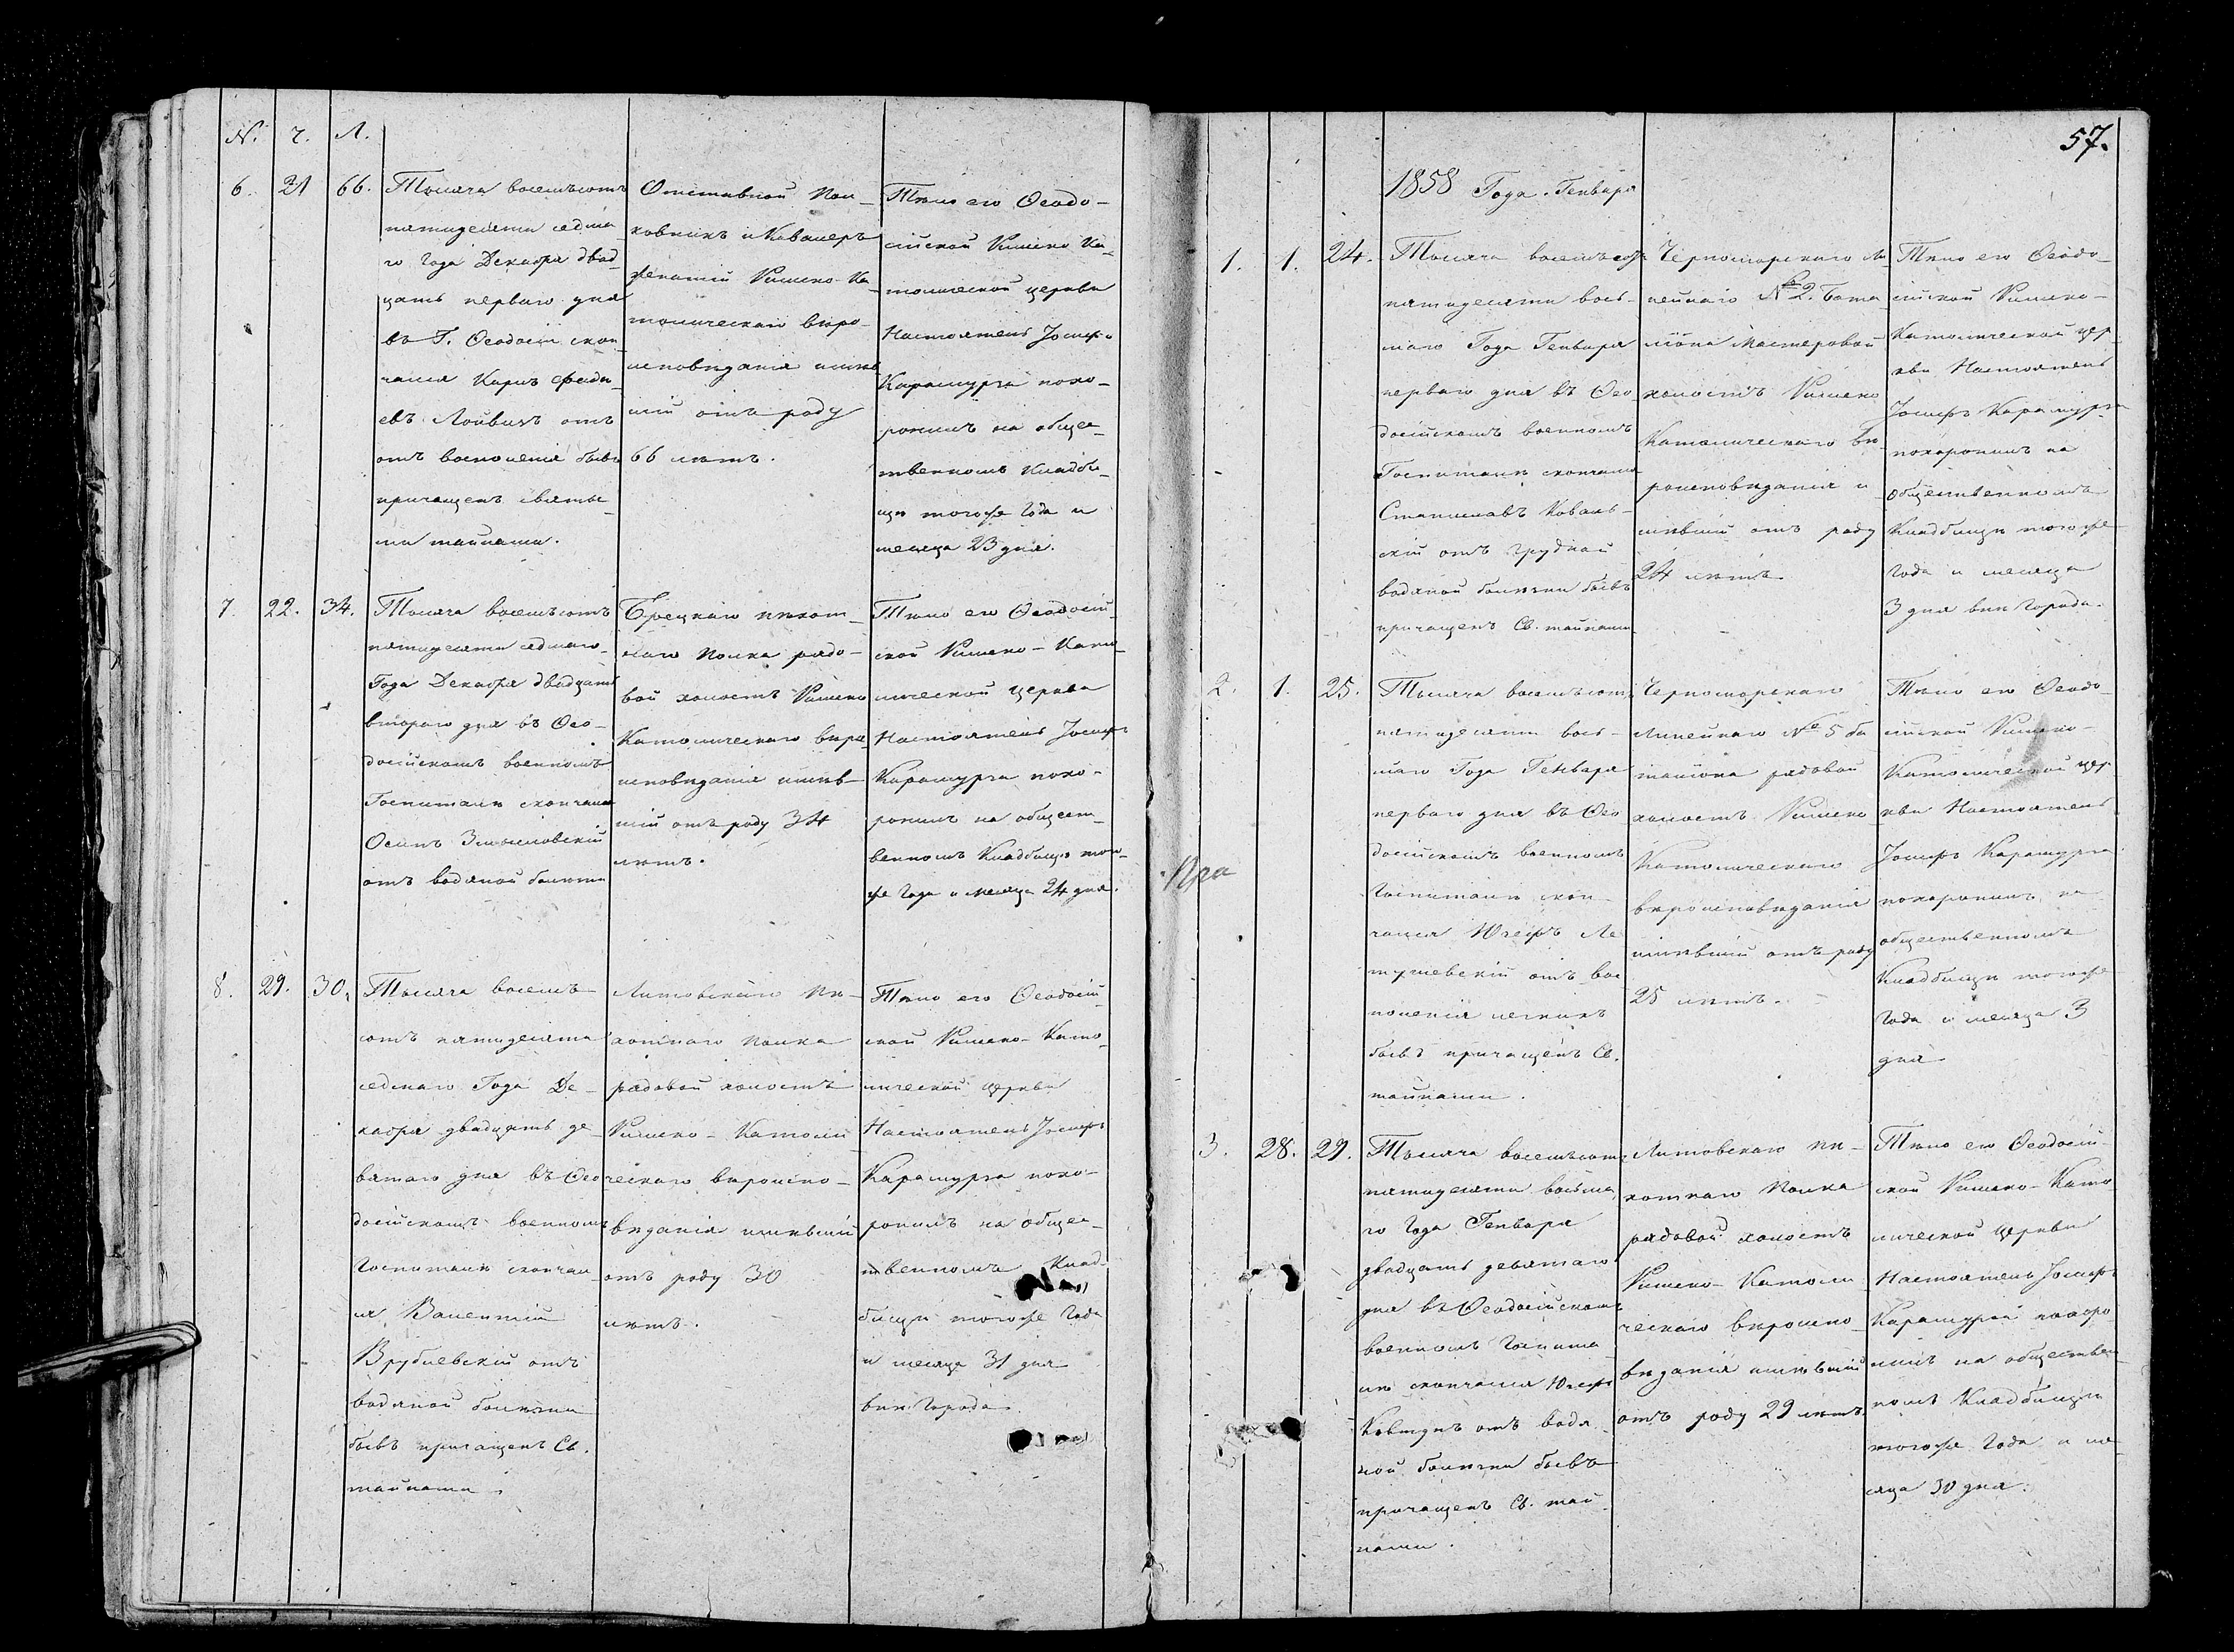 N. ч. Л.
6. 21 66.
Тысяча восемьсотъ
пятидесяти седма
го Года Декабря двад
цать перваго дня
въ Г. Ѳеодосіи скон
чался Карлъ
евъ отъ
отъ восполенія бывъ
причащенъ святы
ми тайнами.
Отставной Пол
ковникъ и Кавалеръ
женатій Римско-Ка
толическаго вѣро
исповѣданія имѣв
шій отъ роду
66 лѣтъ.
Тѣло его Ѳеодо
сійской Римско Ка
толической церкви
Настоятель Іосифъ
Карамурза похо
ронилъ на общес
твенномъ Кладби
щѣ тогоже Года и
месяца 23 дня.
7. 22. 34.
Тысяча восемьсотъ
пятидесяти седмаго
Года Декабря двадцать
втораго дня въ Ѳео
досійскомъ военномъ
Госпиталѣ скончался
Осипъ
отъ водяной болезни
Брецкаго пѣхот
наго Полка рядо
вой холостъ Римско
Католическаго вѣро
исповѣданія имѣв
шій отъ роду 34
лѣтъ.
Тѣло его Ѳеодосій
ской Римско-Като
лической церкви
Настоятель Іосифъ
Карамурза похо
ронилъ на общест
венномъ Кладбищѣ того
же Года и месяца 24 дня.
8. 29. 30.
Тысяча восемь
сотъ пятидесяти
седмаго Года Де
кабря двадцать де
вятаго дня въ Ѳео
досійскомъ военномъ
Госпиталѣ скончал
ся Валентій
Врублевскій отъ
водяной болѣзни
бывъ причащенъ Св.
тайнами.
Литовскаго пѣ
хотнаго Полка
рядовой холостъ
Римско-Католи
ческаго вѣроиспо
вѣданія имѣвшій
отъ роду 30
лѣтъ.
Тѣло его Ѳеодосій
ской Римско-Като
лической церкви
Настоятель Іосифъ
Карамурза похо
ронилъ на общес
твенномъ Клад
бищѣ тогоже Года
и месяца 31 дня
внѣ Города.
57.
1858 Года. Генваря
1. 1. 24.
Тысяча восемьсотъ
пятидесяти вось
маго Года Генваря
перваго дня въ Ѳео
досійскомъ военномъ
Госпиталѣ скончался
Станиславъ Коваль
скій отъ грудной
водяной болѣзни бывъ
причащенъ Св. тайнами
Черноморскаго Ли
нейнаго № 2. Бата
ліона Мастеровой
холостъ Римско
Католическаго вѣ
роисповѣданія и
мѣвшій отъ роду
24 лѣтъ
Тѣло его Ѳеодо
сійской Римско-
Католической цер
кви Настоятель
Іосифъ Карамурза
похоронилъ на
общественномъ
Кладбищѣ тогоже
Года и месяца
3 дня внѣ Города.
2. 1. 25.
Тысяча восемьсотъ
пятидесяти вось
маго Года Генваря
перваго дня въ Ѳео
досійскомъ военномъ
Госпиталѣ скон
чался Юзефъ Ле
тушевскій отъ вос
поленія легкихъ
бывъ причащенъ Св.
тайнами.
Черноморскаго
Линейнаго № 5 ба
таліона рядовой
холостъ Римско
Католическаго
вѣроисповѣданія
имѣвшій отъ роду
25 лѣтъ.
Тѣло его Ѳеодо
сійской Римско-
Католической цер
кви Настоятель
Іосифъ Карамурза
похоронилъ на
общественномъ
Кладбищѣ тогоже
Года и месяца 3
дня
3. 28. 29.
Тысяча восемьсотъ
пятидесяти восьма
го Года Генваря
двадцать девятаго
дня въ Ѳеодосійскомъ
военномъ Госпита
лѣ скончался Юзефъ
Ковтунъ отъ водя
ной болѣзни бывъ
причащенъ Св. тай
нами.
Литовскаго пѣ
хотнаго Полка
рядовой холостъ
Римско-Католи
ческаго вѣроиспо
вѣданія имѣвшій
отъ роду 29 лѣтъ.
Тѣло его Ѳеодосій
ской Римско-Като
лической церкви
Настоятель Іосифъ
Карамурза похоро
нилъ на обществен
номъ Кладбищѣ
тогоже Года и ме
сяца 30 дня.